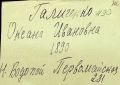 Галиченко
Оксана Ивановна
1890
Н. Водопой Первомайская
291